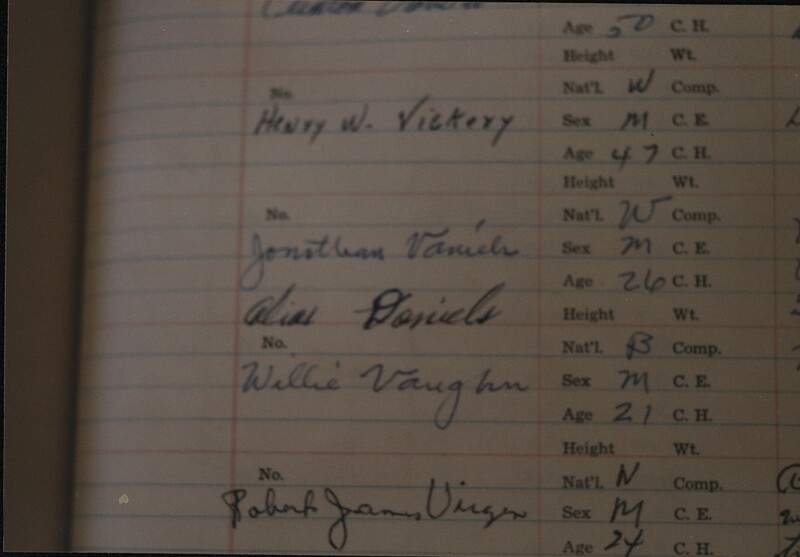 Age 50 C. H.
Height Wt.
No. Nat'l. W Comp.
Henry W. Vickery Sex M C. E.
Age 47 C. H.
Height Wt.
No. Nat'l. W Comp.
Jonathan Vaniels Sex M C. E.
Age 26 C. H.
alias Daniels Height Wt.
No. Nat'l. B Comp.
Willie Vaughn Sex M C. E.
Age 21 C. H.
Height Wt.
No. Nat'l. N Comp.
Robert James Virgen Sex M C. E.
Age 24 C. H.